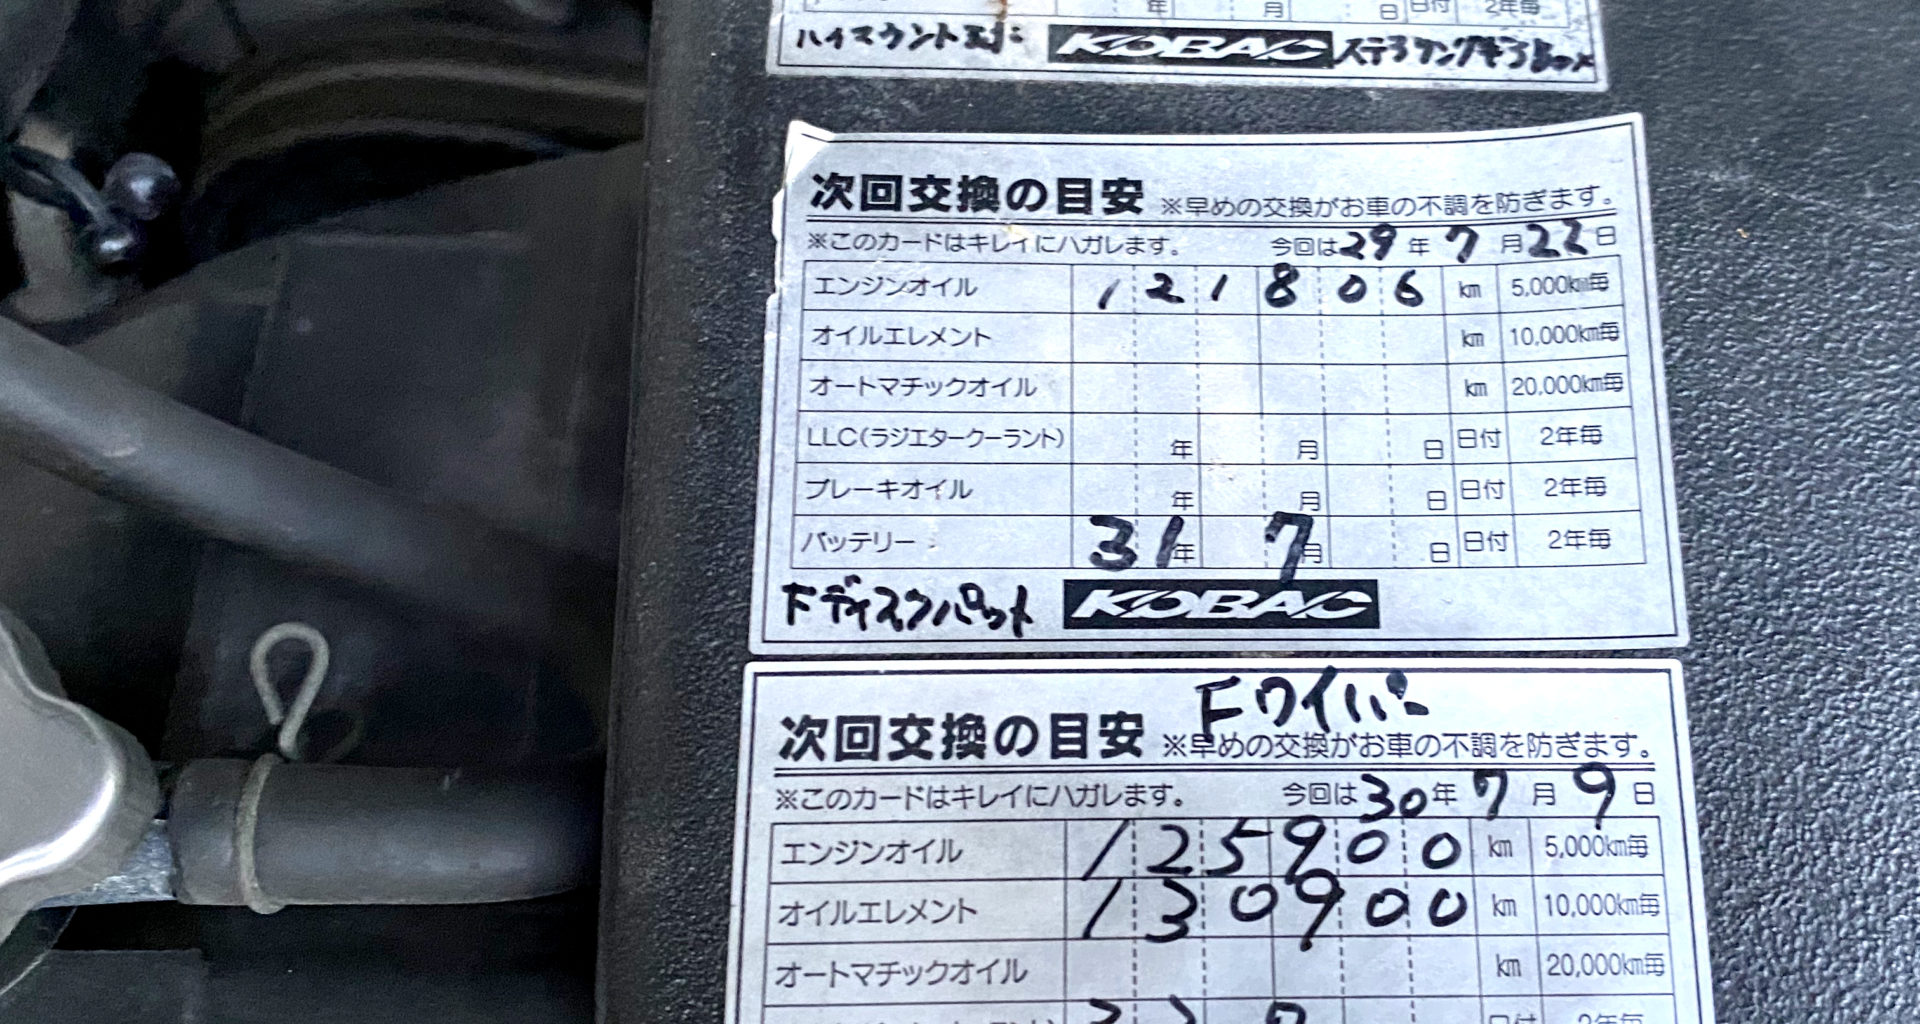 年 月 日 日付 2年毎
ハイマウント KOBAC ステアリングギアBox
次回交換の目安 ※早めの交換がお車の不調を防ぎます。
※このカードはキレイにハガレます。 今回は29年7月22日
エンジンオイル 121806 km 5,000km毎
オイルエレメント km 10,000km毎
オートマチックオイル km 20,000km毎
LLC(ラジエタークーラント) 年 月 日 日付 2年毎
ブレーキオイル 年 月 日 日付 2年毎
バッテリー 31年 7月 日 日付 2年毎
Fディスクパット KOBAC
Fワイパー
次回交換の目安 ※早めの交換がお車の不調を防ぎます。
※このカードはキレイにハガレます。 今回は30年7月9日
エンジンオイル 125900 km 5,000km毎
オイルエレメント 130900 km 10,000km毎
オートマチックオイル km 20,000km毎
日付 2年毎